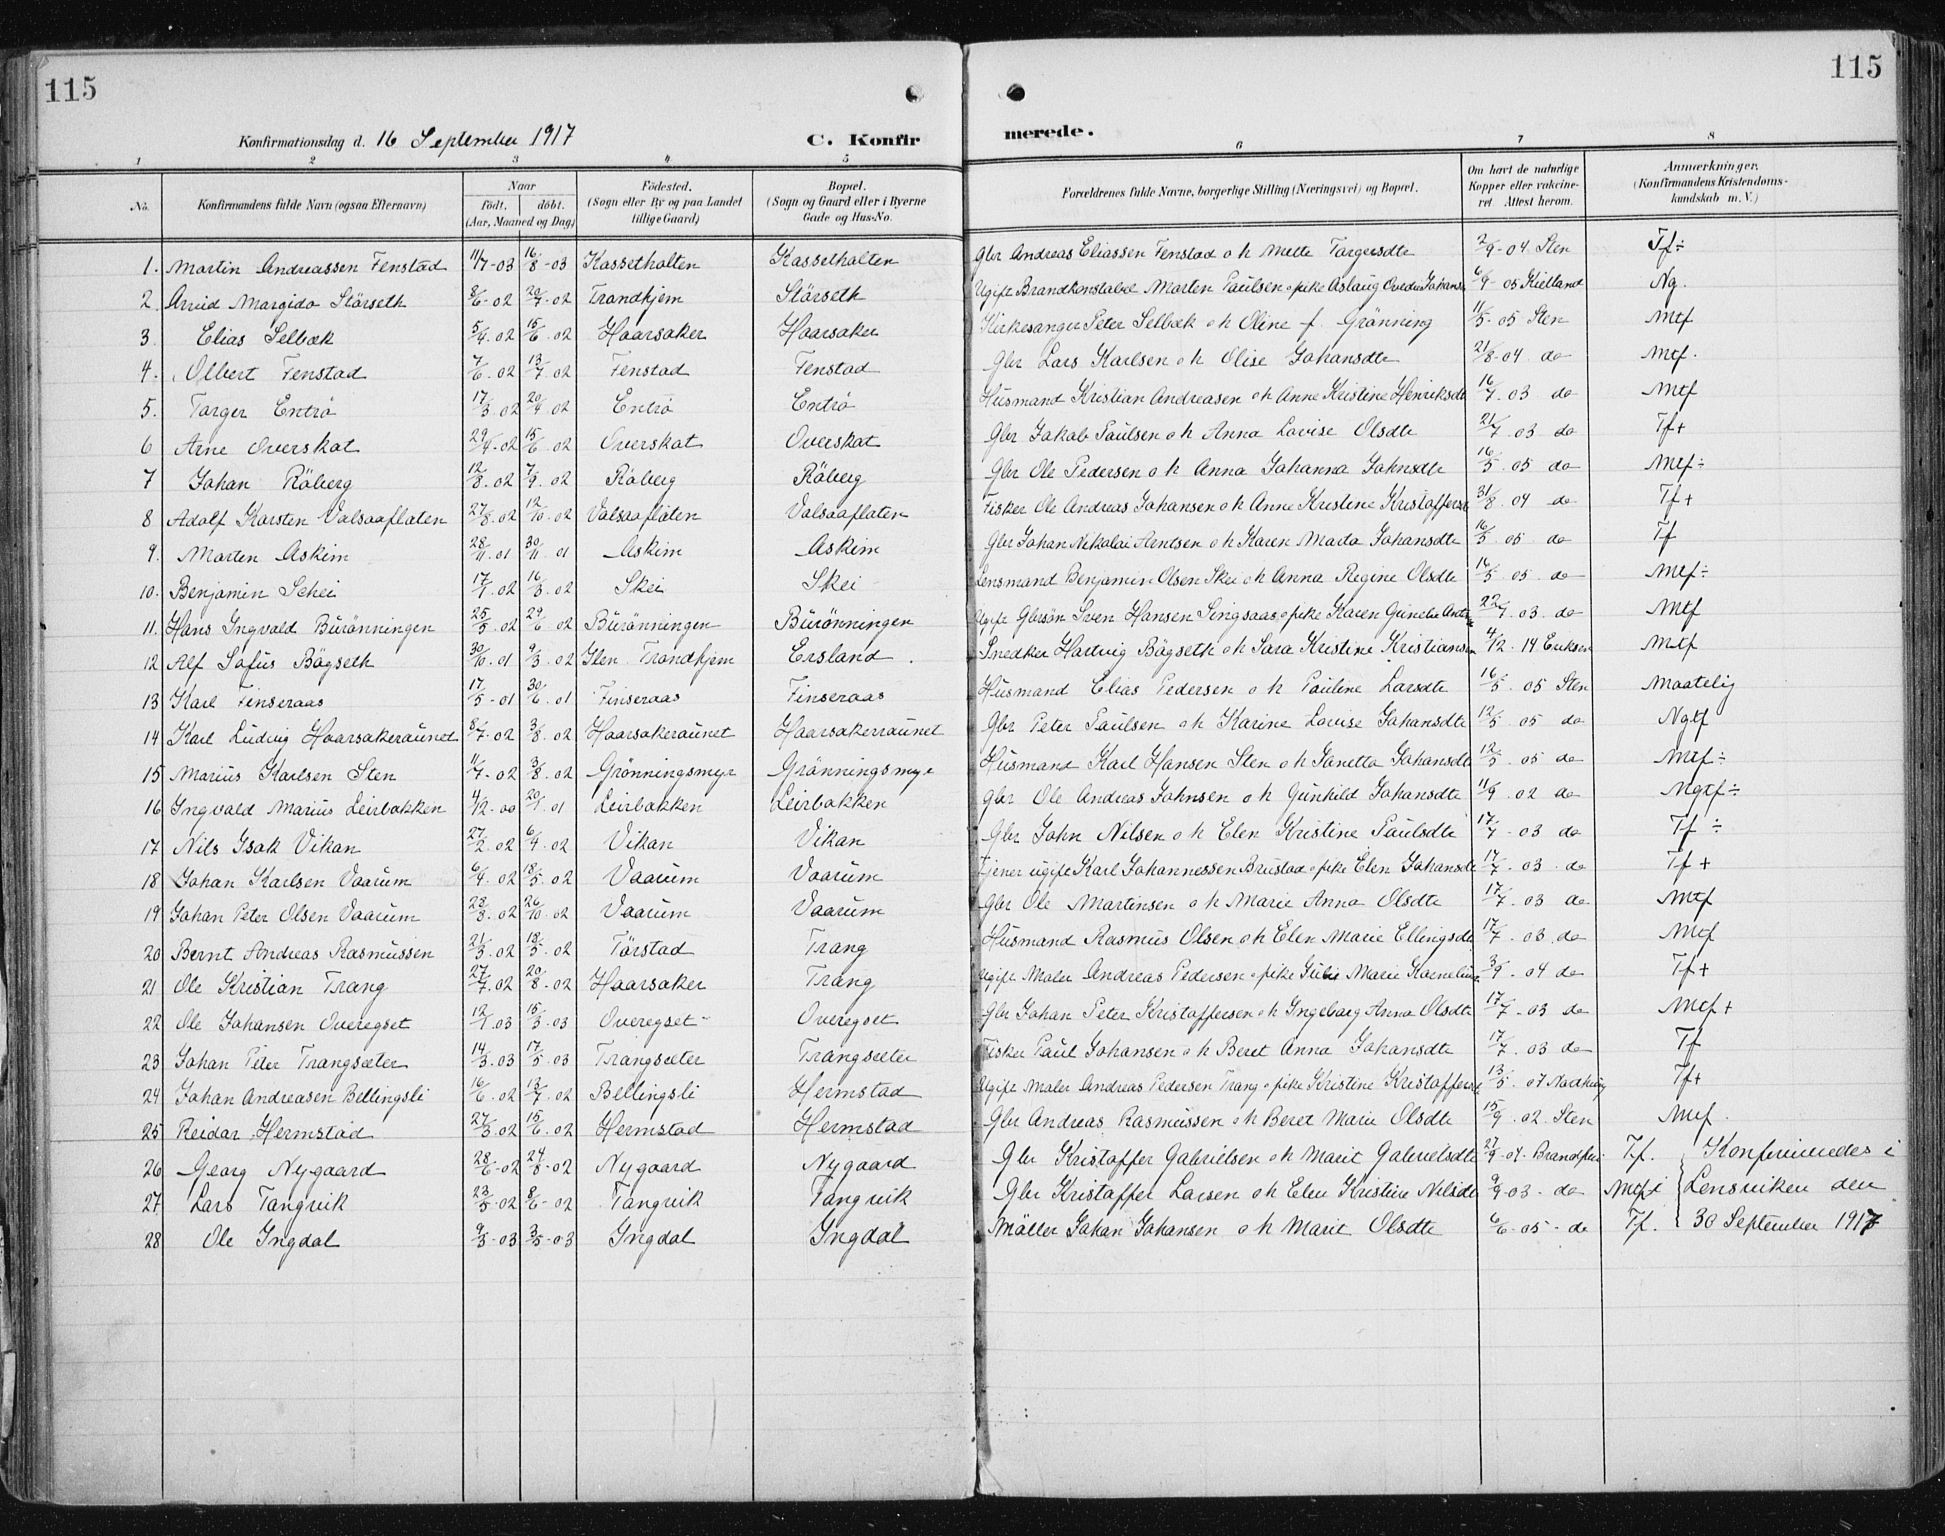 115
115
Konfirmationsdag d. 16 September 1917
C. Konfir
merede.
1 2 3 4 5 6 7 8
No. Konfirmandens fulde Navn (ogsaa Efternavn) Naar født. døbt. (Aar, Maaned og Dag) Fødested. (Sogn eller By og paa Landet tillige Gaard) Bopæl. (Sogn og Gaard eller i Byerne Gade og Hus-No. Forældrenes fulde Navne, borgerlige Stilling (Næringsvei) og Bopæl. Om havt de naturlige Kopper eller vakcineret. Attest herom. Anmærkninger. (Konfirmandens Kristendomskundskab m. V.)
1. Martin Andreassen Fenstad 11/7-03 16/8-03 Kassetholten Kassetholten Gbr Andreas Eliassen Fenstad o h Mette Torgersdtr 2/9-04 Sten Tf÷
2 Arvid Margido Störseth 8/6-02 20/7-02 Trondhjem Störseth Ugift Brandkonstabel Morten Paulsen o pike Aslaug 6/9-05 Kielland Ng.
3. Elias Selbæk 5/4.02 15/6.02 Haarsaker Haarsaker Kirkesanger Peter Selbæk o h Oline f. Grönning 11/5-05 Sten Mtf
4. Olbert Fenstad 7/6.02 13/7.02 Fenstad Fenstad Gbr Lars Karlsen o h Olise Johansdtr 21/8.04 do Mtf.
5. Torger Entrö 17/3.02 20/4.02 Entrö Entrö Husmand Kristian Andreasen o h Anne Kristine Henriksdt 16/7.03 do Mtf
6 Arne Overskot 29/4-02 15/6.02 Overskot Overskot Gbr Jakob Paulsen o h Anna Lovise Olsdtr 21/7.03 do Tf+
7 Johan Röberg 12/8.02 7/9.02 Röberg Röberg Gbr Ole Pedersen o h Anna Johanna Johnsdtr 16/5.05 do Mtf÷
8 Adolf Karsten Valsaaflaten 27/8.02 12/10.02 Valsaaflaten Valsaaflaten Fisker Ole Andreas Johansen o h Anne Kristine 31/8.04 do Tf+
9. Morten Askim 28/11.01 30/11.01 Askim Askim Gbr Johan Nikolai Arntsen o h Karen Marta Johansdtr 16/5.05 do Tf
10. Benjamin Schei 17/1.02 16/3.02 Skei Skei Lensmand Benjamin Olsen Skei o h Anna Regine Olsdtr 16/5.05. do Mtf÷
11. Hans Ingvald Burönningen 25/5.02 29/6.02 Burönningen Burönningen Ugift Gbrsön Sven Hansen Singsaas o pike Karen 22/7.03. do Mtf
12 Alf Sofus Bögseth 30/10.01 9/3.02 Ilen Trondhjem Ersland. Snedker Hartvig Bögseth o h Sara Kristine Kristiansen 4/12.14 Eriksen Mtf
13 Karl Finseraas 17/5-01 30/6.01 Finseraas Finseraas Husmand Elias Pedersen o h Pauline Larsdtr 16/5.05 Sten Maatelig
14 Karl Ludvig Haarsakeraunet 8/7-02 3/8.02 Haarsakeraunet Haarsakerraunet Gbr Peter Paulsen o h Karine Lovise Johansdtr 12/5.05 do Ngtf
15 Marius Karlsen Sten 11/7-02 3/8.02 Grönningsmyr Grönningsmyr Husmand Karl Hansen Sten o h Janetta Johansdt 12/5.05 do Mtf÷
16 Ingvald Marius Leirbakken 4/12-00 20/1.01 Leirbakken Leirbakken Gbr Ole Andreas Johnsen o h Gunhild Johansdtr 11/9.02 do Mgtf÷
17 Nils Isak Vikan 27/2.02 6/4.02 Vikan Vikan Gbr John Nilsen o h Elen Kristine Paulsdtr 17/7-03 do Tf÷
18 Johan Karlsen Vaarum 6/4.02 18/5.02 Vaarum Vaarum Tjener ugift Karl Johannessen Brustad o pike Elen Johansdt 17/7.03. do Tf+
19 Johan Peter Olsen Vaarum 28/8.02 26/10.02 Vaarum Vaarum Gbr Ole Martinsen o h Marie Anna Olsdtr 17/7.03 do Mtf
20 Bernt Andreas Rasmussen 21/3.02 18/5.02 Törstad Trang Husmand Rasmus Olsen o h Elen Marie Ellingsdt 17/7.03. do Mtf
21 Ole Kristian Trang 27/7.02 20/8.02 Haarsaker Trang Ugift Maler Andreas Pedersen o pike Marie 3/9.04 do Tf+
22 Ole Johansen Overegset 12/1.03 15/3.03 Overegset Overegset Gbr Johan Peter Kristoffersen o h Ingeborg Anna Olsdtr 17/7.03 do Mtf+
23 Johan Peter Trangsæter 14/3.03 17/5.03 Trangsæter Trangsæter Fisker Paul Johansen o h Beret Anna Johansdtr 17/7.03 do Tf
24 Johan Andreasen Bellingsli 16/6.02 13/7.02 Bellingsli Hermstad Ugift Maler Andreas Pedersen Trang o pike Kristine 13/5.07 Tf+
25 Reidar Hermstad 27/3.02 15/6.02 Hermstad Hermstad Gbr Andreas Rasmussen o h Beret Marie Olsdtr 15/9.02. Sten Mtf.
26 Georg Nygaard 28/6-02 24/8-02 Nygaard Nygaard Gbr Kristoffer Gabrielsen o h Marit Gabrielsdtr 27/9-04- Tf. Konfirmeredes i
27 Lars Tangvik 23/5-02 8/6-02 Tangvik Tangvik Gbr Kristoffer Larsen o h Elen Kristine Nilsdt 9/9-03- do Mtf÷ Lensviken den
28 Ole Ingdal 9/3-03 3/5-03 Ingdal Ingdal Möller Johan Johansen o h Marit Olsdtr 6/6-05- do Tf. 30 September 1917